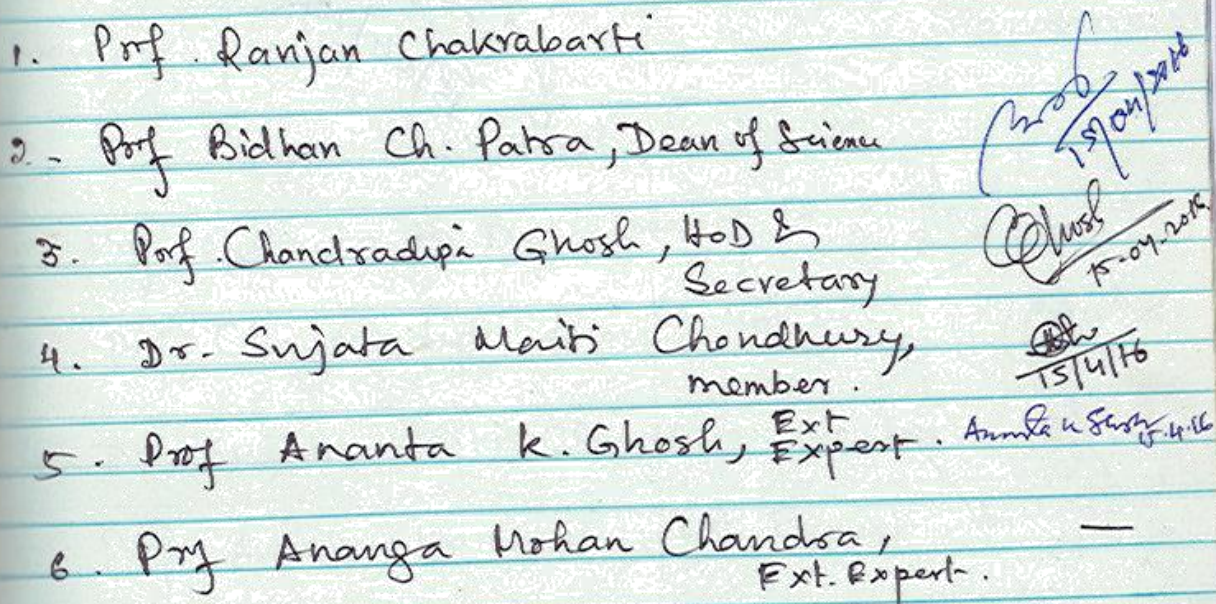 1. Prof. Ranjan Chakrabarti
2. Prof Bidhan Ch. Patra, Dean of Science 15/04/2016
3. Prof. Chandradipa Ghosh, HoD & CGhosh
Secretary 15-04-2016
4. Dr. Sujata Maiti Choudhury,
member. 15/4/16
5. Prof Ananta K. Ghosh, Ext
Expert. Ananta K Ghosh 15.4.16
6. Prof Ananga Mohan Chandra, —
Ext. Expert.